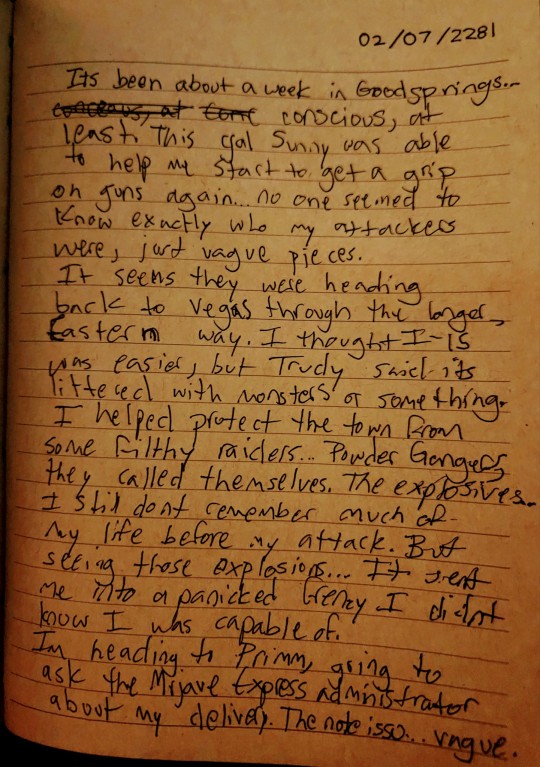 02/07/2281
Its been about a week in Goodsprings...
conscious, at
least. This gal Sunny was able
to help me start to get a grip
on guns again... no one seemed to
know exactly who my attackers
were, just vague pieces.
It seems they were heading
back to Vegas through the longer,
Eastern way. I thought I-15
was easier, but Trudy said its
littered with monsters or something.
I helped protect the town from
some filthy raiders... Powder Gangers,
they called themselves. The explosives...
I still dont remember much of
my life before my attack. But
seeing those explosions... It sent
me into a panicked frenzy I didnt
know I was capable of.
Im heading to Primm, going to
ask the Mojave Express administrator
about my delivery. The note is so... vague.